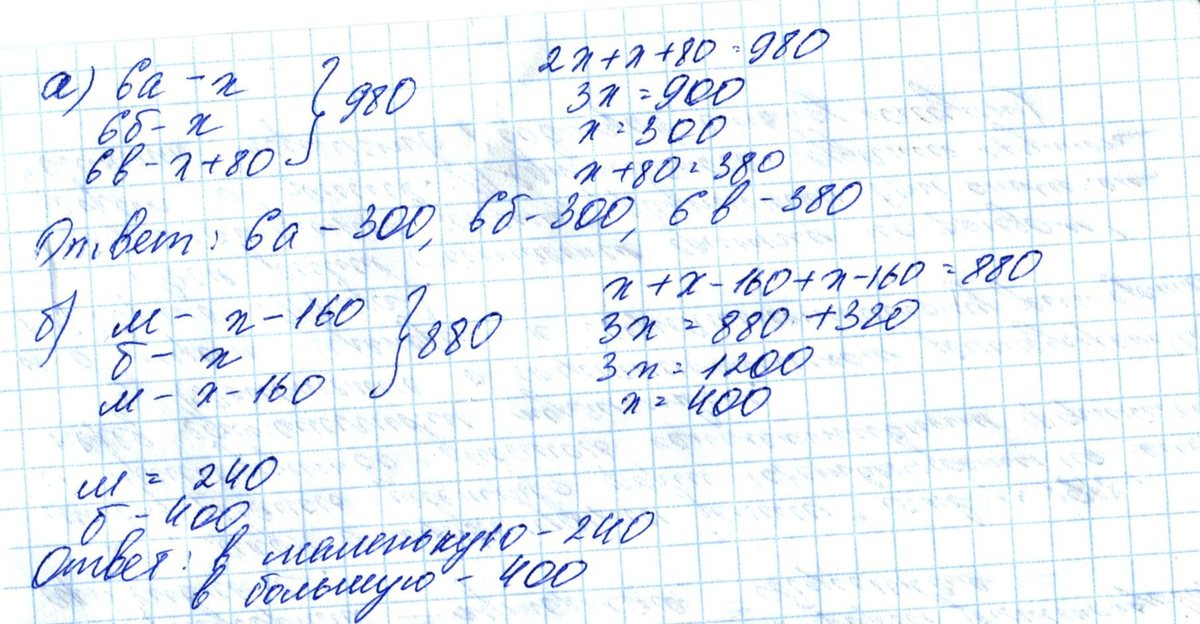 а) 6а - х
6б - х
6в - х + 80
} 980
2х + х + 80 = 980
3х = 900
х = 300
х + 80 = 380
Ответ: 6а - 300, 6б - 300, 6в - 380
б) м - х - 160
б - х
м - х - 160
} 880
х + х - 160 + х - 160 = 880
3х = 880 + 320
3х = 1200
х = 400
м = 240
б - 400
Ответ: в маленькую - 240
в большую - 400